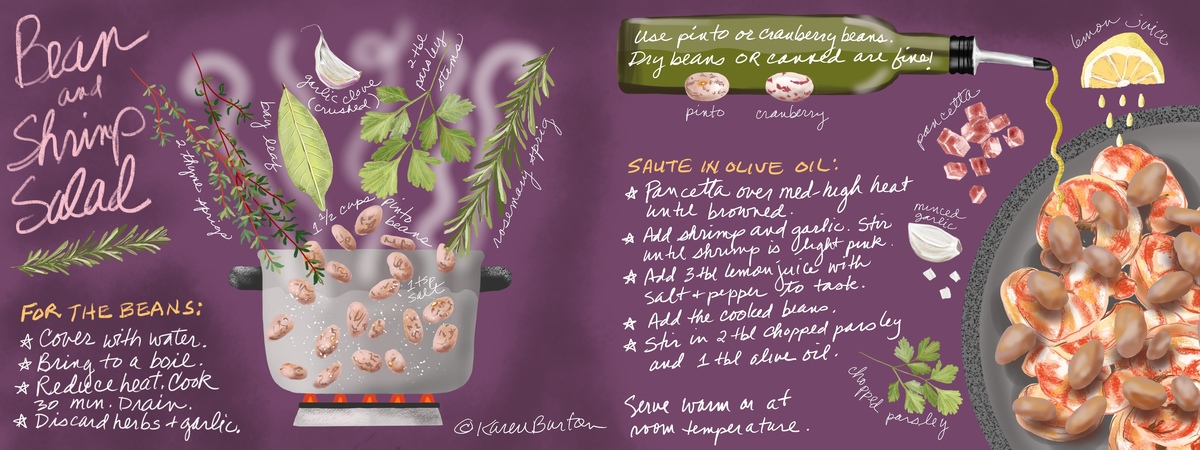 Bean
and
Shrimp
Salad
2 thyme sprigs
bay leaf
garlic clove
(crushed)
2 tbl
parsley
stems
rosemary sprig
1 1/2 cups pinto
beans
1 tsp
salt
FOR THE BEANS:
☆ Cover with water.
☆ Bring to a boil.
☆ Reduce heat. Cook
30 min. Drain.
☆ Discard herbs + garlic.
©Karen Burton
Use pinto or cranberry beans.
Dry beans OR canned are fine!
pinto
cranberry
lemon juice
pancetta
SAUTE IN OLIVE OIL:
☆ Pancetta over med-high heat
until browned.
☆ Add shrimp and garlic. Stir
until shrimp is light pink.
☆ Add 3 tbl lemon juice with
salt + pepper to taste.
☆ Add the cooked beans.
☆ Stir in 2 tbl chopped parsley
and 1 tbl olive oil.
minced
garlic
chopped parsley
Serve warm or at
room temperature.